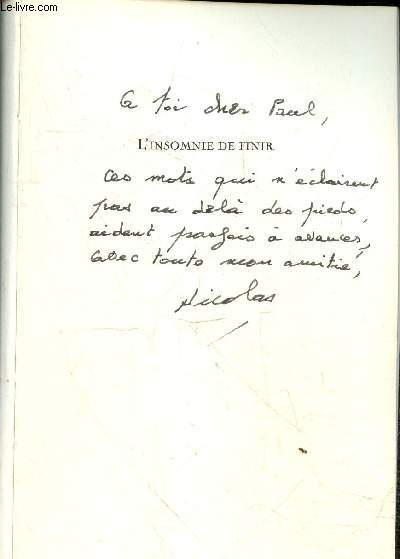 © Le-livre.com
A toi cher Paul,
L'INSOMNIE DE FINIR
ces mots qui n'éclairent
pas au delà des pieds,
aident parfois à avancer,
avec toute mon amitié,
Nicolas